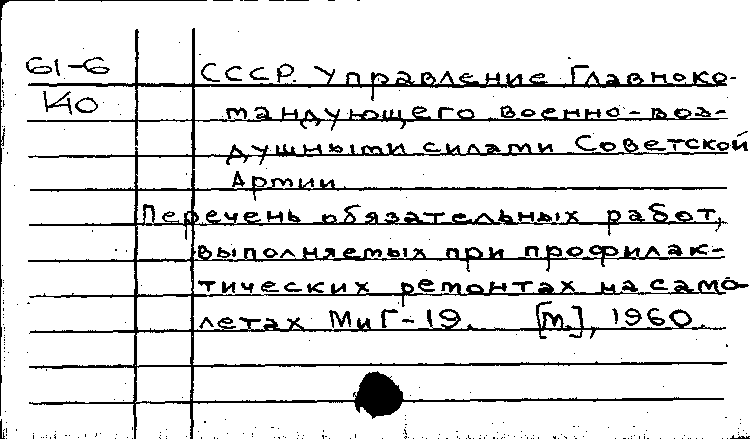 61-6 СССР. Управление Главноко-
140 мандующего военно-воз-
душными силами Советской
Армии.
Перечень обязательных работ,
выполняемых при профилак-
тических ремонтах на само-
летах МиГ-19. [М.], 1960.